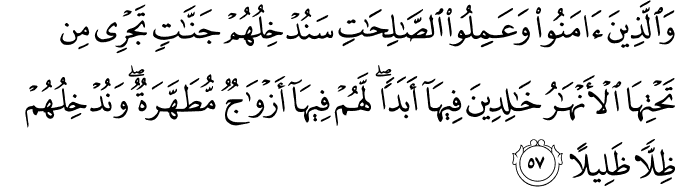 وَٱلَّذِينَ ءَامَنُوا۟ وَعَمِلُوا۟ ٱلصَّـٰلِحَـٰتِ سَنُدْخِلُهُمْ جَنَّـٰتٍ تَجْرِى مِن
تَحْتِهَا ٱلْأَنْهَـٰرُ خَـٰلِدِينَ فِيهَآ أَبَدًا ۖ لَّهُمْ فِيهَآ أَزْوَٰجٌ مُّطَهَّرَةٌ ۖ وَنُدْخِلُهُمْ
ظِلًّا ظَلِيلًا ٥٧